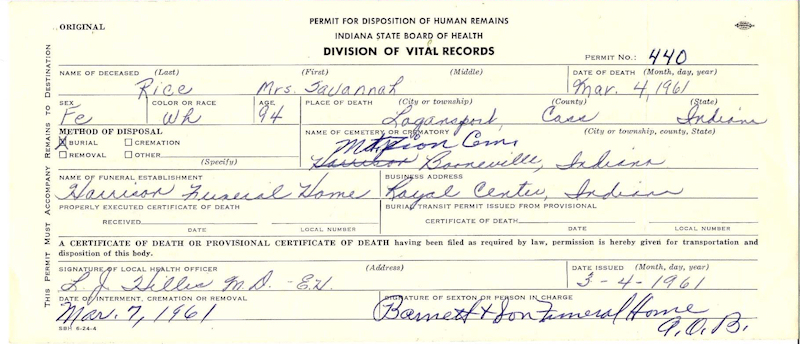 ORIGINAL
PERMIT FOR DISPOSITION OF HUMAN REMAINS
INDIANA STATE BOARD OF HEALTH
DIVISION OF VITAL RECORDS
PERMIT NO.: 440
NAME OF DECEASED (Last) (First) (Middle) DATE OF DEATH (Month, day, year)
Rice Mrs. Savannah Mar. 4, 1961
SEX COLOR OR RACE AGE PLACE OF DEATH (City or township) (County) (State)
Fe Wh 94 Logansport, Cass Indiana
METHOD OF DISPOSAL NAME OF CEMETERY OR CREMATORY (City or township, county, State)
BURIAL CREMATION Cem.
REMOVAL OTHER (Specify) Harrison Booneville, Indiana
NAME OF FUNERAL ESTABLISHMENT BUSINESS ADDRESS
Harrison Funeral Home Royal Center, Indiana
PROPERLY EXECUTED CERTIFICATE OF DEATH BURIAL TRANSIT PERMIT ISSUED FROM PROVISIONAL
RECEIVED CERTIFICATE OF DEATH
DATE LOCAL NUMBER DATE LOCAL NUMBER
A CERTIFICATE OF DEATH OR PROVISIONAL CERTIFICATE OF DEATH having been filed as required by law, permission is hereby given for transportation and
disposition of this body.
SIGNATURE OF LOCAL HEALTH OFFICER (Address) DATE ISSUED (Month, day, year)
L. J. Hillis M.D. 3-4-1961
DATE OF INTERMENT, CREMATION OR REMOVAL SIGNATURE OF SEXTON OR PERSON IN CHARGE
Mar. 7, 1961 Barnett & Son Funeral Home
A.O.B.
SBH 6-24-4
THIS PERMIT MUST ACCOMPANY REMAINS TO DESTINATION